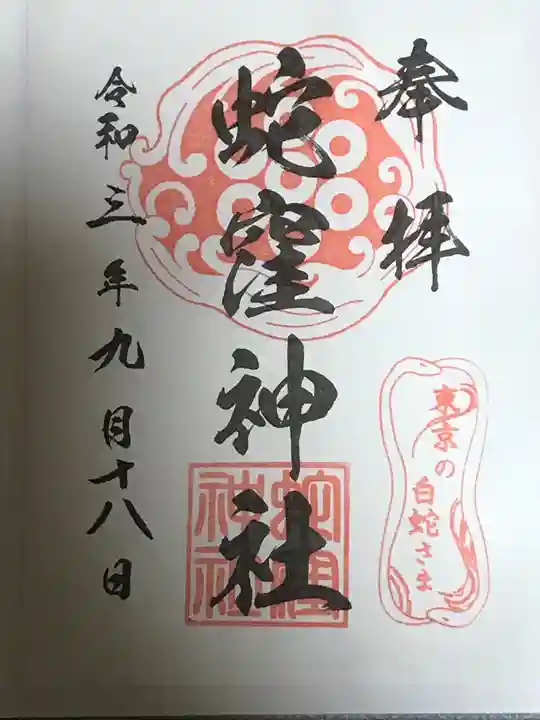 奉拝
東京の
白蛇さま
蛇窪神社
蛇窪
神社
令和三年九月十八日